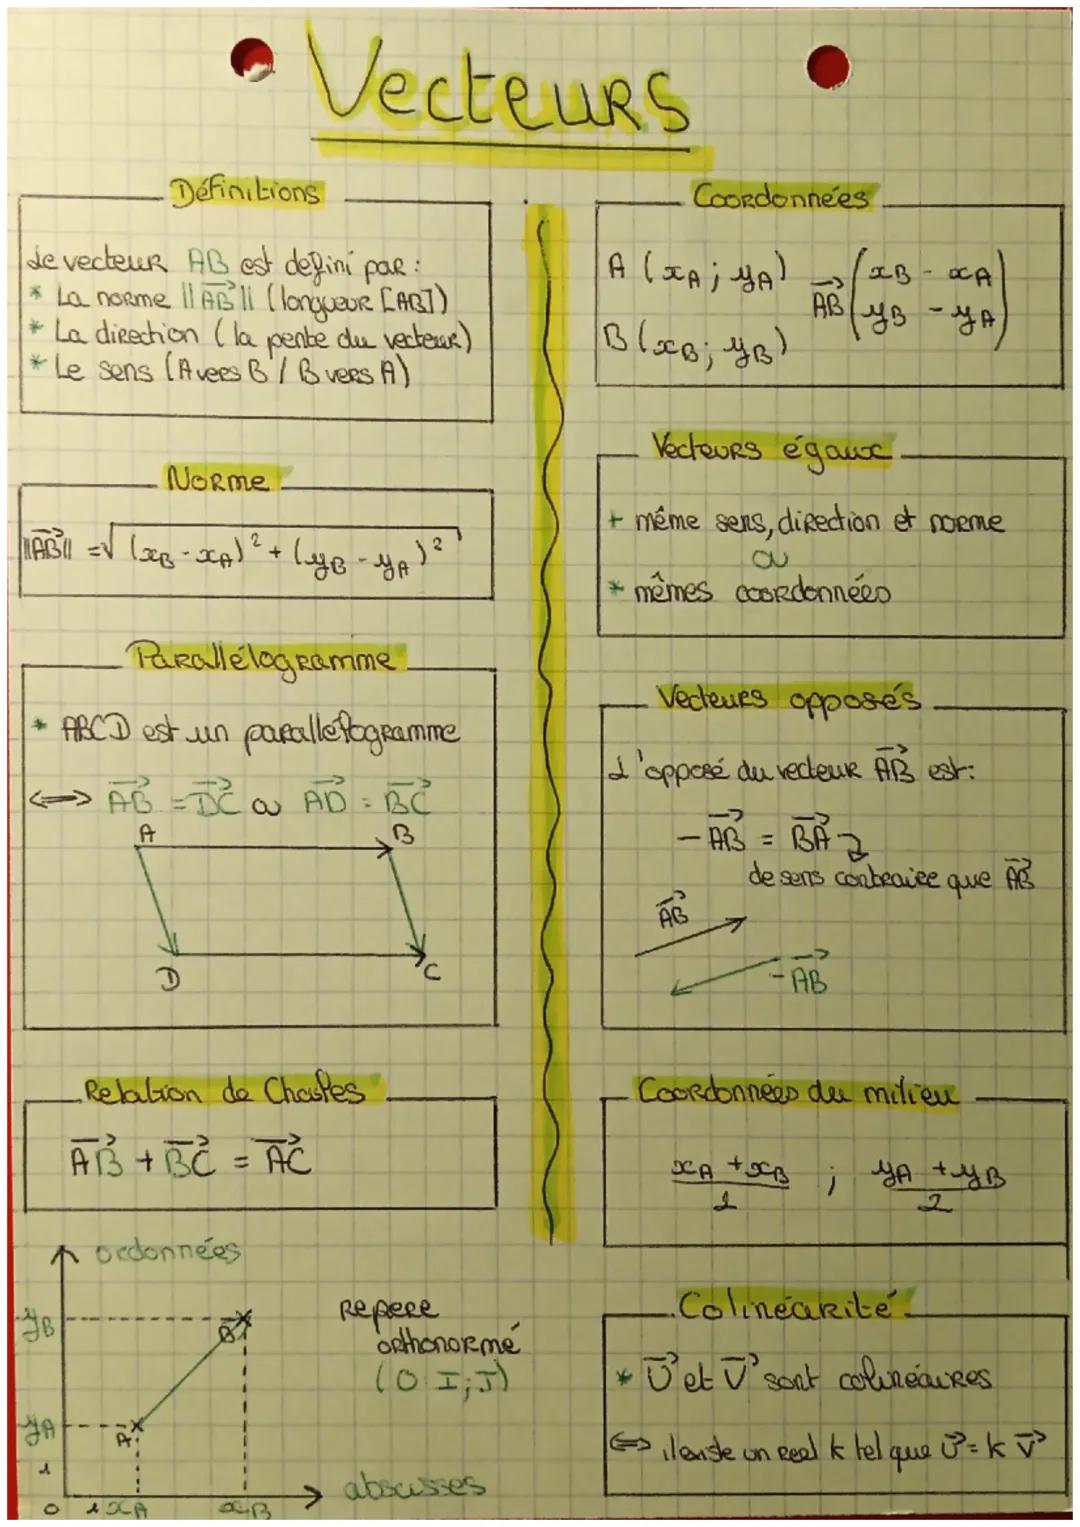 Vecteurs
Définitions
Le vecteur AB est défini par :
* La norme ||AB|| (longueur [AB])
* La direction (la pente du vecteur)
* Le sens (A vers B / B vers A)
Norme
||AB|| = √(xB - xA)² + (yB - yA)²
Parallélogramme
* ABCD est un parallélogramme
⟺ AB = DC ou AD = BC
A B
D C
Relation de Chasles
AB + BC = AC
ordonnées
yB
B
yA
A
1
0 1 xA xB
abscisses
Repere
orthonormé
(O I; J)
Coordonnées
A (xA ; yA)
B (xB ; yB)
AB (xB - xA
yB - yA)
Vecteurs égaux
+ même sens, direction et norme
ou
* mêmes coordonnées
Vecteurs opposés
L'opposé du vecteur AB est :
- AB = BA
de sens contraire que AB
AB
- AB
Coordonnées du milieu
xA + xB / 2 ; yA + yB / 2
Colinéarité
* U et V sont colinéaires
⟺ il existe un réel k tel que U = k V